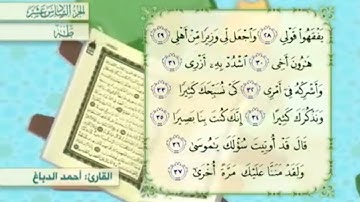 الجزء السادس عشر
طه
يَفْقَهُوا۟ قَوْلِى ٢٨ وَٱجْعَل لِّى وَزِيرًا مِّنْ أَهْلِى ٢٩
هَٰرُونَ أَخِى ٣٠ ٱشْدُدْ بِهِۦٓ أَزْرِى ٣١
وَأَشْرِكْهُ فِىٓ أَمْرِى ٣٢ كَىْ نُسَبِّحَكَ كَثِيرًا ٣٣
وَنَذْكُرَكَ كَثِيرًا ٣٤ إِنَّكَ كُنتَ بِنَا بَصِيرًا ٣٥
قَالَ قَدْ أُوتِيتَ سُؤْلَكَ يَٰمُوسَىٰ ٣٦
وَلَقَدْ مَنَنَّا عَلَيْكَ مَرَّةً أُخْرَىٰٓ ٣٧
القارئ: أحمد الدباغ